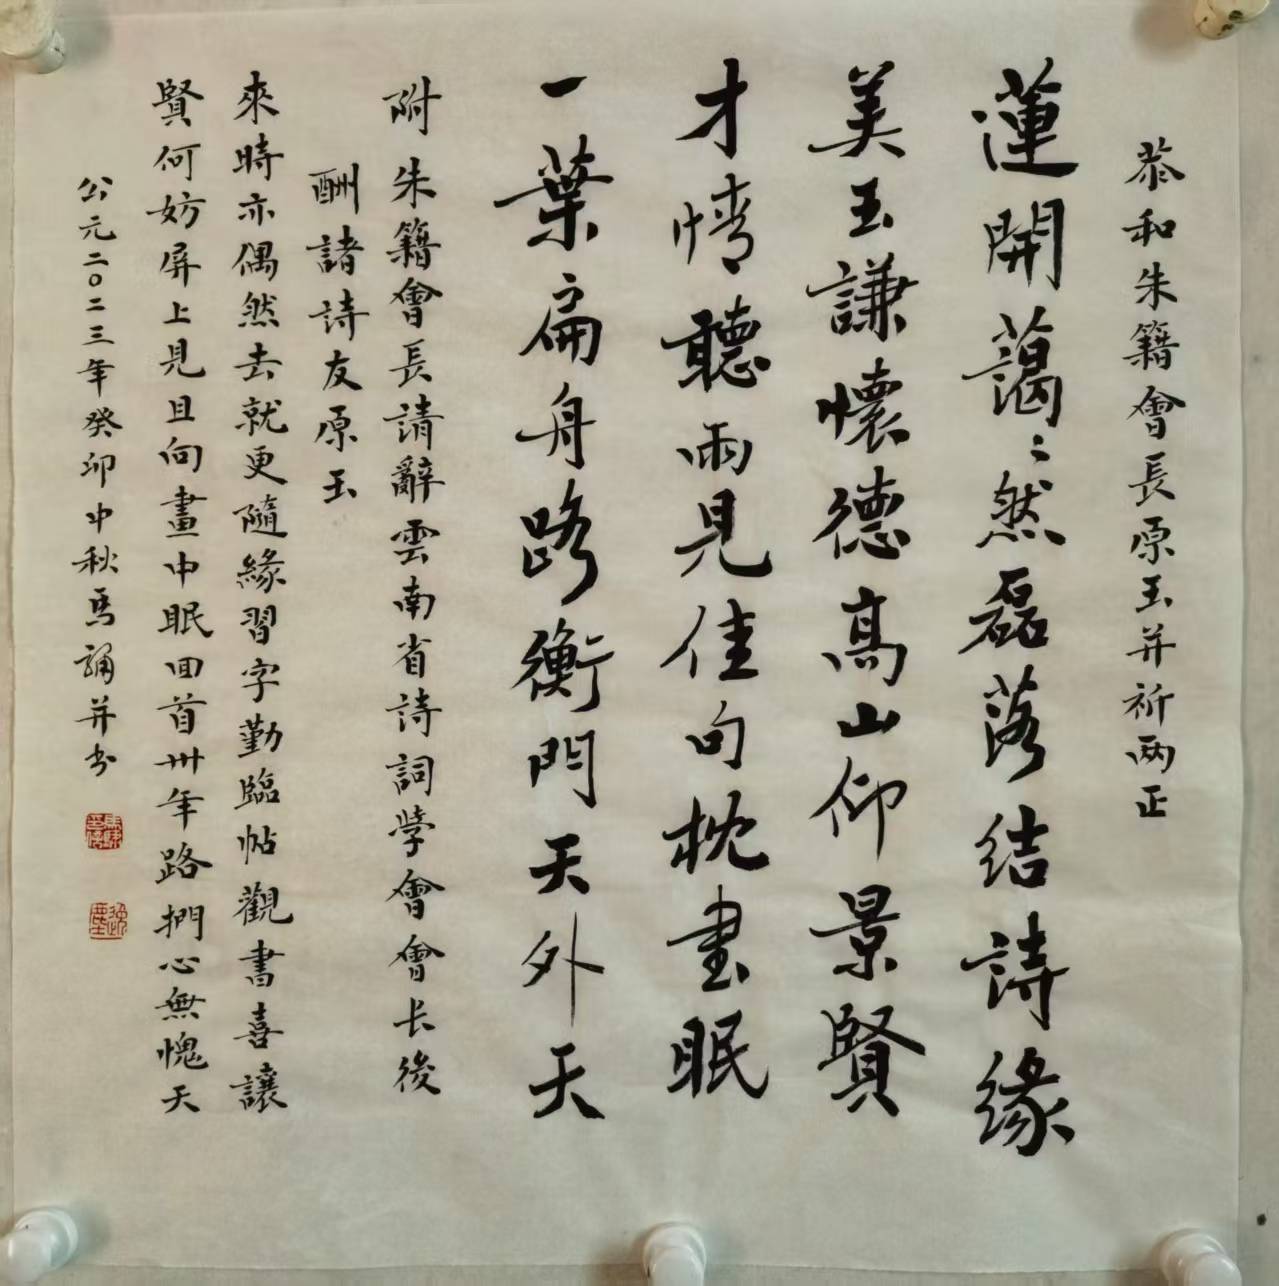 恭和朱籍會長原玉并祈两正
蓮開藹〻然磊落结詩缘
美玉謙懷德高山仰景賢
才情聽雨見佳句枕畫眠
一葉扁舟路衡門天外天
附朱籍會長請辭雲南省詩詞學會會长後
酬諸詩友原玉
來時亦偶然去就更隨緣習字勤臨帖觀書喜讓
賢何妨屏上見且向畫中眠回首卅年路捫心無愧天
公元二〇二三年癸卯中秋馬誦并书